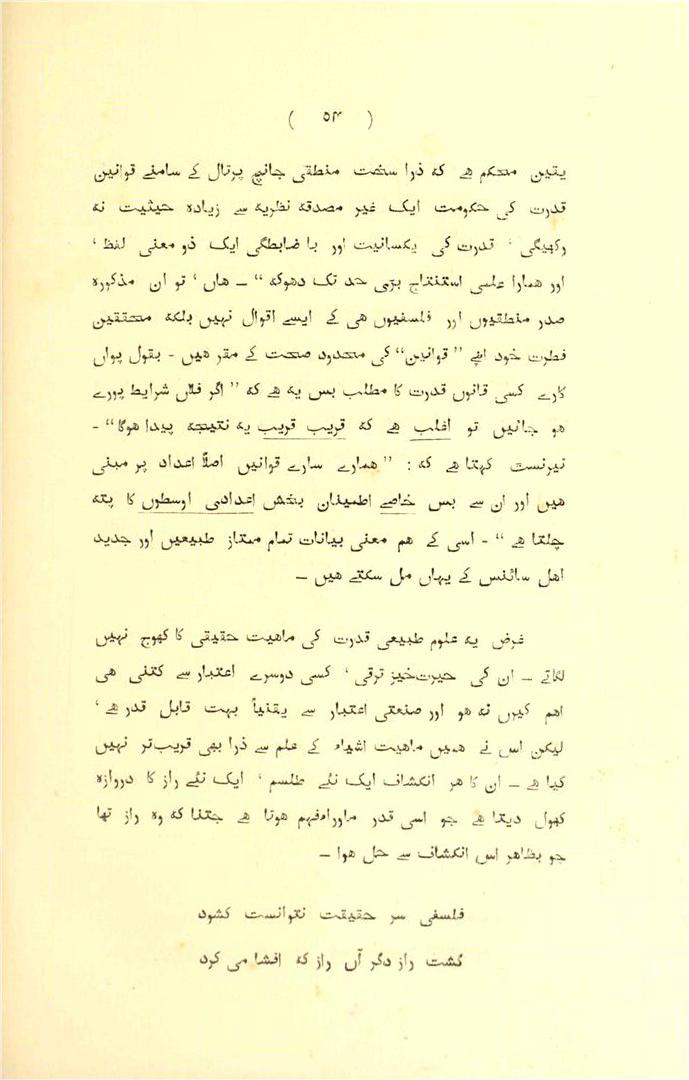 ( ٥٣ )
یقین محکم ہے کہ ذرا سخت منطقی جانچ پرتال کے سامنے قوانین
قدرت کی حکومت ایک غیر مصدقہ نظریہ سے زیادہ حیثیت نہ
رکھیگی ، قدرت کی یکسانیت اور با ضابطگی ایک ذو معنی لفظ ،
اور ہمارا علمی استنتاج بڑی حد تک دھوکہ “ ـ ہاں ، تو ان مذکورہ
صدر منطقیوں اور فلسفیوں ہی کے ایسے اقوال نہیں بلکہ محققین
فطرت خود اپنے ” قوانین “ کی محدود صحت کے مقر ہیں - بقول پواں
کارے کسی قانون قدرت کا مطلب بس یہ ہے کہ ” اگر فلاں شرایط پورے
ہو جائیں تو اغلب ہے کہ قریب قریب یہ نتیجہ پیدا ہوگا “ -
نیرنست کہتا ہے کہ : ” ہمارے سارے قوانیں اصلاً اعداد پر مبنی
ہیں اور ان سے بس خاصے اطمینان بخش اعدادی اوسطوں کا پتہ
چلتا ہے “ - اسی کے ہم معنی بیانات تمام ممتاز طبیعیں اور جدید
اہل سائنس کے یہاں مل سکتے ہیں ـ
غرض یہ علوم طبیعی قدرت کی ماہیت حقیقی کا کھوج نہیں
لگاتے ـ ان کی حیرت‌خیز ترقی ، کسی دوسرے اعتبار سے کتنی ہی
اہم کیوں نہ ہو اور صنعتی اعتبار سے یقنیاً بہت قابل قدر ہے ،
لیکن اس نے ہمیں ماہیت اشیاء کے علم سے ذرا بھی قریب‌تر نہیں
کیا ہے ـ ان کا ہر انکشاف ایک نئے طلسم ، ایک نئے راز کا دروازہ
کھول دیتا ہے جو اسی قدر ماوراءفہم ہوتا ہے جتنا کہ وہ راز تھا
جو بظاہر اس انکشاف سے حل ہوا ـ
فلسفی سر حقیقت نتوانست کشود
گشت راز دگر آں راز کہ افشا می کرد